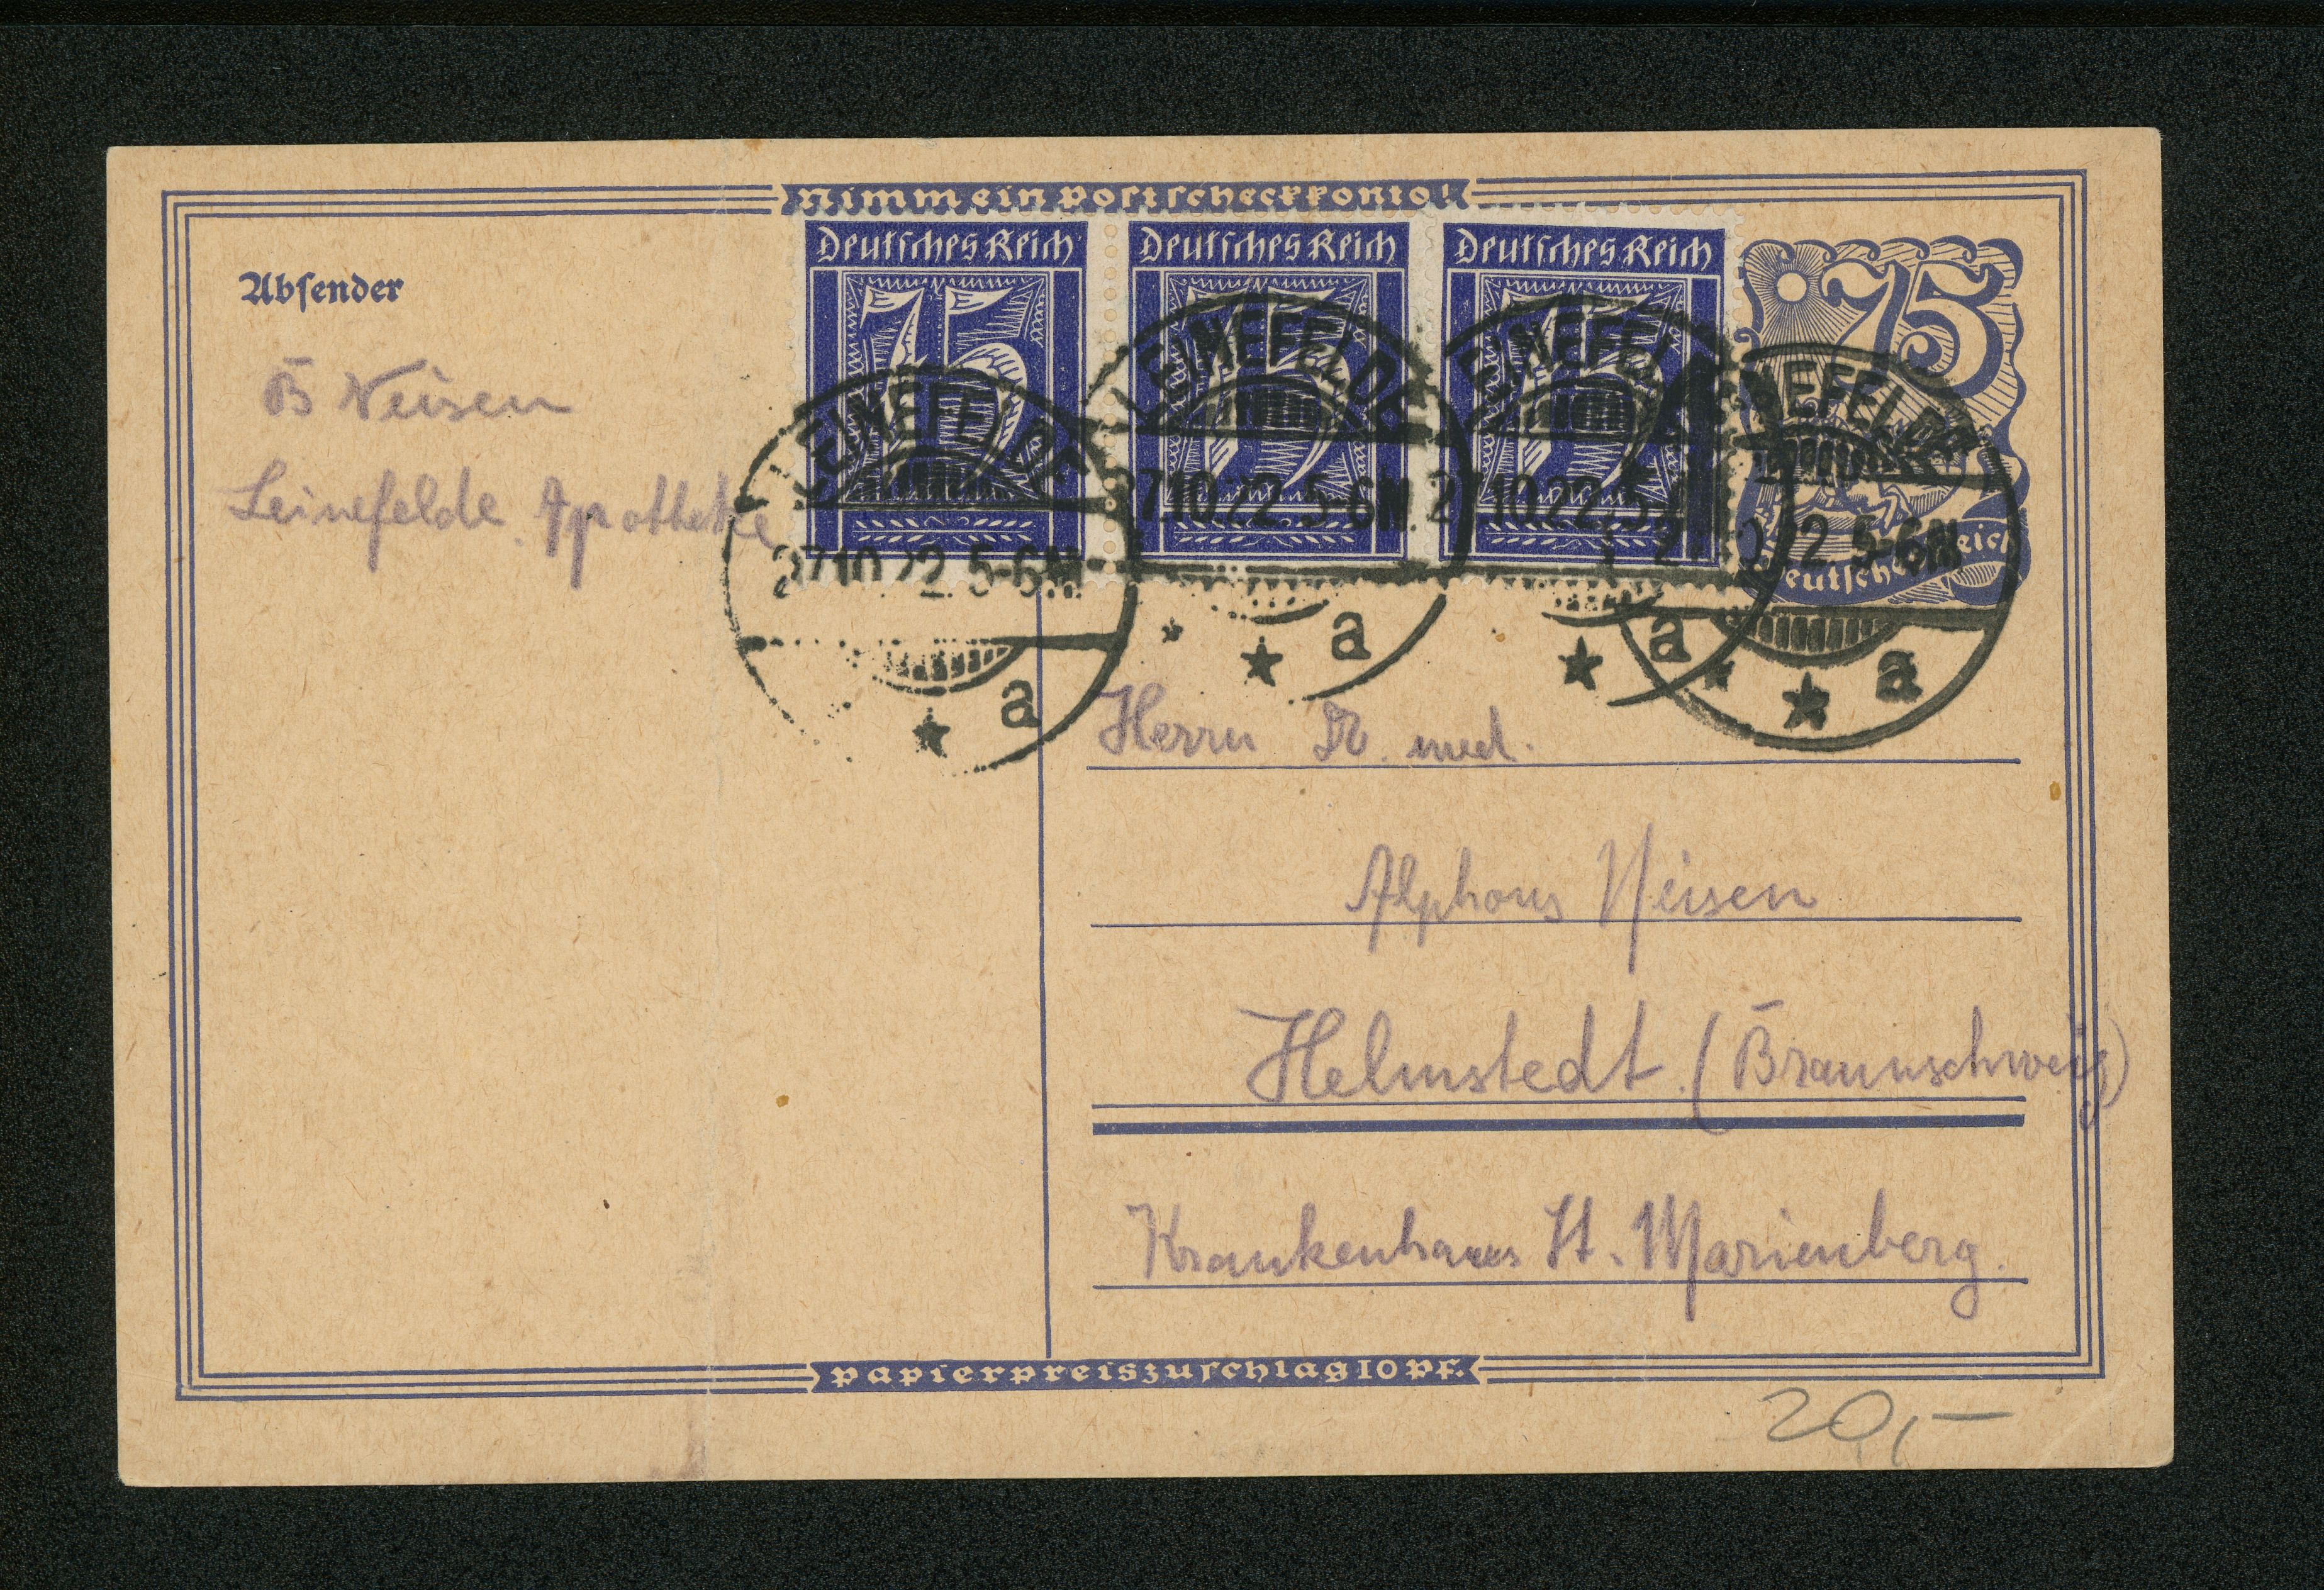 Nimm ein Postscheckkonto!
Absender
Deutsches Reich
75
Deutsches Reich
75
Deutsches Reich
75
75
Deutsches Reich
LEINEFELDE
27.10.22. 5-6N.
* a
LEINEFELDE
27.10.22. 5-6N.
* * a
LEINEFELDE
27.10.22. 5-6N.
* a
LEINEFELDE
27.10.22. 5-6N.
* * a
B Neisen
Leinefelde. Apotheke
Herrn Dr. med.
Alphons Neisen
Helmstedt. (Braunschweig)
Krankenhaus St. Marienberg.
Papierpreiszuschlag 10 Pf.
20,-